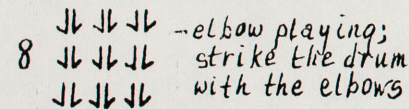 -elbow playing;
8 strike the drum
with the elbows